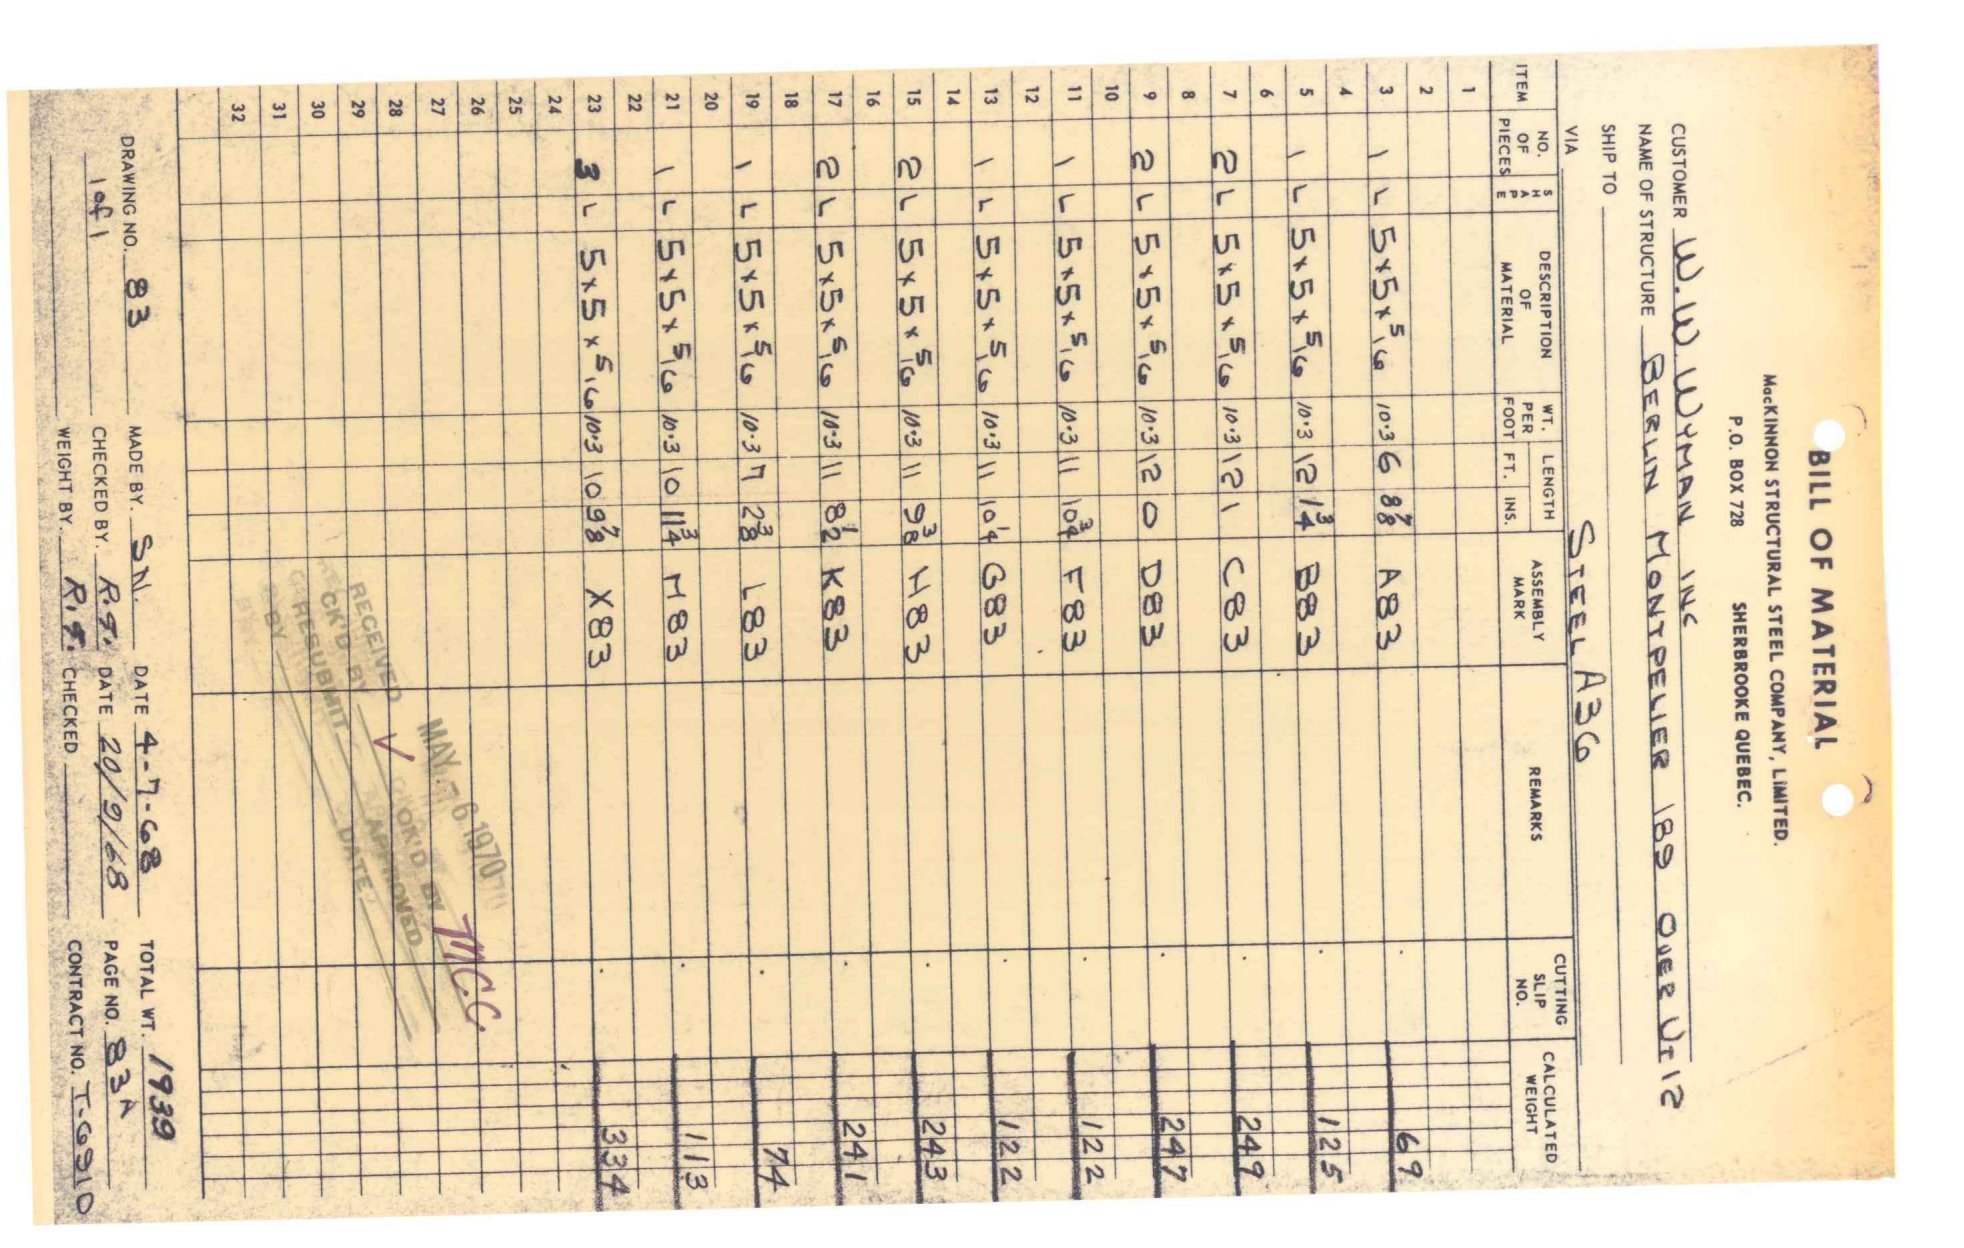 BILL OF MATERIAL
MacKINNON STRUCTURAL STEEL COMPANY, LIMITED.
P.O. BOX 728 SHERBROOKE QUEBEC.
CUSTOMER W.W. WYMAN INC
NAME OF STRUCTURE BERLIN MONTPELIER 189 OVER VT 12
SHIP TO
VIA STEEL A36
ITEM NO. OF PIECES SHAPE DESCRIPTION OF MATERIAL WT. PER FOOT LENGTH FT. INS. ASSEMBLY MARK REMARKS CUTTING SLIP NO. CALCULATED WEIGHT
1
2
3 1 L 5x5x5/16 10.3 6 8 7/8 A83 69
4
5 1 L 5x5x5/16 10.3 12 1 3/4 B83 125
6
7 2 L 5x5x5/16 10.3 12 1 C83 249
8
9 2 L 5x5x5/16 10.3 12 0 D83 247
10
11 1 L 5x5x5/16 10.3 11 10 3/4 F83 122
12
13 1 L 5x5x5/16 10.3 11 10 1/4 G83 122
14
15 2 L 5x5x5/16 10.3 11 9 3/8 H83 243
16
17 2 L 5x5x5/16 10.3 11 8 1/2 K83 241
18
19 1 L 5x5x5/16 10.3 7 2 3/8 L83 74
20
21 1 L 5x5x5/16 10.3 10 11 3/4 M83 113
22
23 3 L 5x5x5/16 10.3 10 9 7/8 X83 334
24
25
26
27
28
29
30
31
32
RECEIVED MAY 6 1970
CK'D BY OK'D BY M.C.C.
RESUBMIT APPROVED
BY DATE
DRAWING NO. 83 MADE BY. S.N. DATE 4-7-68 TOTAL WT. 1939
1 of 1 CHECKED BY. DATE 20/9/68 PAGE NO. 83A
WEIGHT BY. CHECKED CONTRACT NO. T-6910